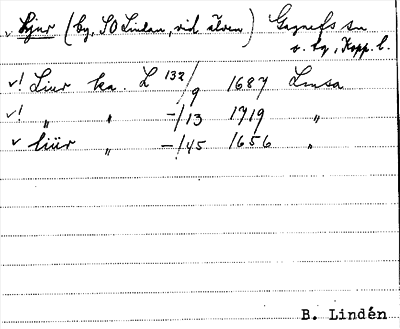 v Ljur (by, SO Lindan, vid älven) Gagnefs sn
s. tg, Kopp. l.
v! Liur ka. L 132/9 1687 Lmsa
v! „ „ -/13 1719 „
v liür „ -/45 1656 „
B. Lindén